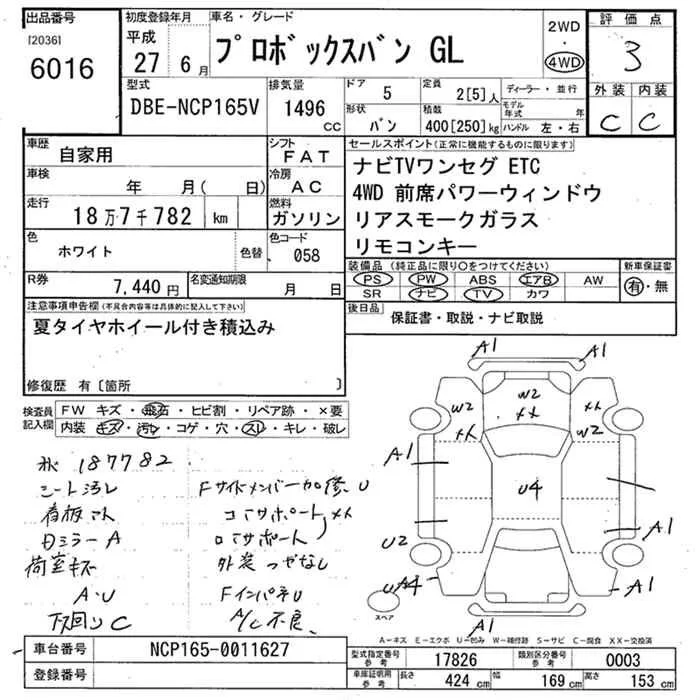 出品番号
[2036]
6016
初度登録年月
平成
27 6月
車名・グレード
プロボックスバン GL
2WD
・
4WD
評価点
3
型式
DBE-NCP165V
排気量
1496
CC
ドア
5
定員
2[5]人
形状
バン
積載
400[250]kg
ディーラー・並行
モデル年式 年
ハンドル 左・右
外装 内装
C C
車歴
自家用
シフト
FAT
車検
年 月( 日)
冷房
AC
走行
18万7千782 km
燃料
ガソリン
色
ホワイト
色替
色コード
058
R券
7,440円
名変通知期限
月 日
セールスポイント(正常に機能するものに限ります)
ナビTVワンセグ ETC
4WD 前席パワーウィンドウ
リアスモークガラス
リモコンキー
装備品(純正品に限り○をつけてください)
PS PW ABS エアB AW
SR ナビ TV カワ
新車保証書
有・無
後日品
保証書・取説・ナビ取説
注意事項申告欄(不具合内容等は具体的に記入して下さい)
夏タイヤホイール付き積込み
修復歴 有〔箇所 〕
検査員
記入欄
FW キズ・飛石・ヒビ割・リペア跡・×要
内装 キズ・汚れ・コゲ・穴・スレ・キレ・破レ
187782
シート汚レ
看板
ミラー A
荷室キズ
A・U
下回り C
Fサイドメンバー加修、U
コアサポート XX
ロアサポート
外装 つやなし
Fインパネ U
A/C 不良、
A1
A1
W2
W2
XX
XX
XX
W2
A1
U4
U2
A1
A4
A1
A1
スペア
A-キズ E-エクボ U-凹み W-補修跡 S-サビ C-腐食 XX-交換済
車台番号
NCP165-0011627
登録番号
型式指定番号
参考
17826
類別区分番号
参考
0003
車庫証明用
参考
長さ
424 cm
幅
169 cm
高さ
153 cm